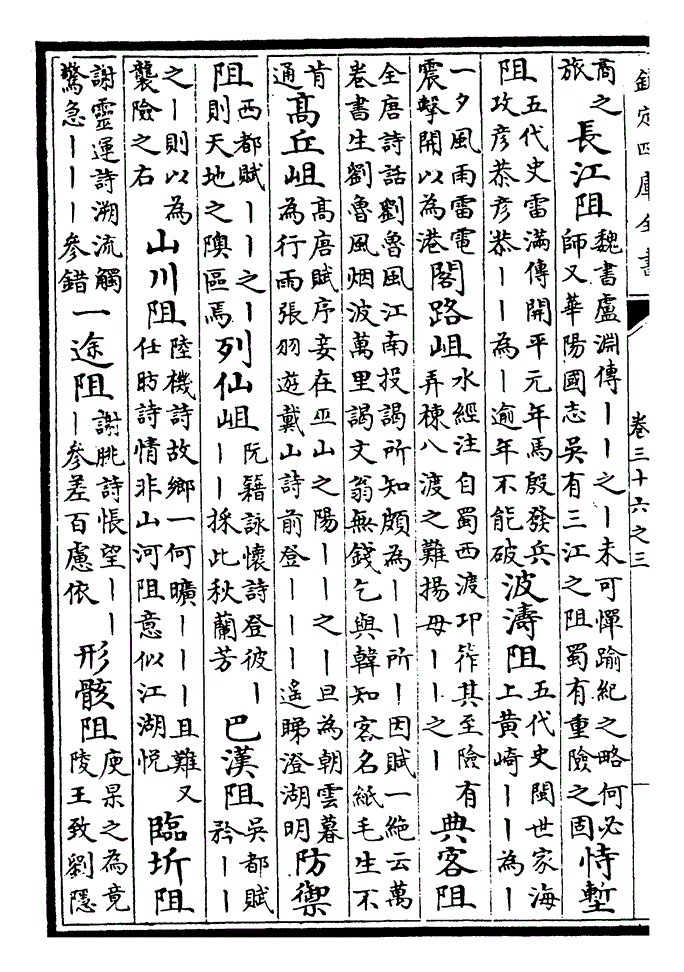 欽定四庫全書 卷三十六之三
商之旅 長江阻 魏書盧淵傳丨丨之丨未可憚踰紀之略何必師又華陽國志吳有三江之阻蜀有重險之固 恃塹
阻 五代史雷滿傳開平元年馬殷發兵攻彦恭彦恭丨丨為丨逾年不能破 波濤阻 五代史閩世家海上黄崎丨丨為丨
一夕風雨雷電震擊開以為港 閣路岨 水經注自蜀西渡卭筰其至險有弄棟八渡之難揚母丨丨之丨 典客阻
全唐詩話劉魯風江南投謁所知頗為丨丨所丨因賦一絶云萬卷書生劉魯風烟波萬里謁文翁無錢乞與韓知客名紙毛生不
肯通 高丘岨 高唐賦序妾在巫山之陽丨丨之丨旦為朝雲暮為行雨張羽遊戴山詩前登丨丨丨遥睇澄湖明 防禦
阻 西都賦丨丨之丨則天地之隩區焉 列仙岨 阮籍詠懷詩登彼丨丨丨採此秋蘭芳 巴漢阻 吳都賦矜丨丨
之丨則以為襲險之右 山川阻 陸機詩故鄉一何曠丨丨丨且難又任昉詩情非山河阻意似江湖悦 臨圻阻
謝靈運詩溯流觸驚急丨丨丨參錯 一途阻 謝朓詩悵望丨丨丨參差百慮依 形骸阻 庾杲之為竟陵王致劉隱